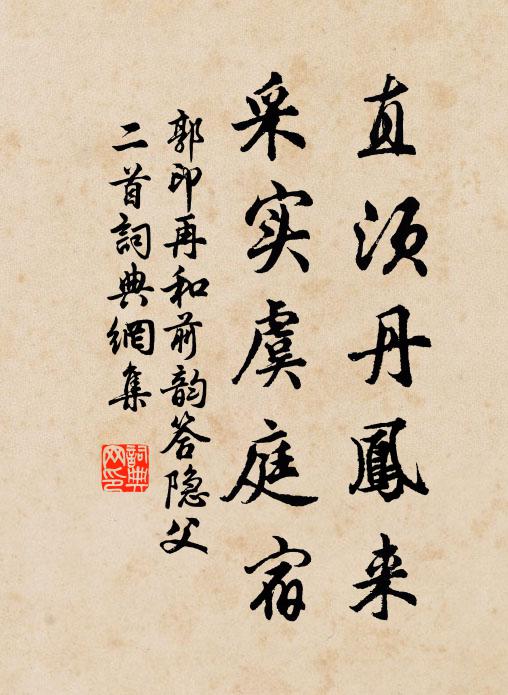 直须丹鳳来
采实虞庭宿
郭印再和前韵答隐父
二首詞典網集
詞典
网印